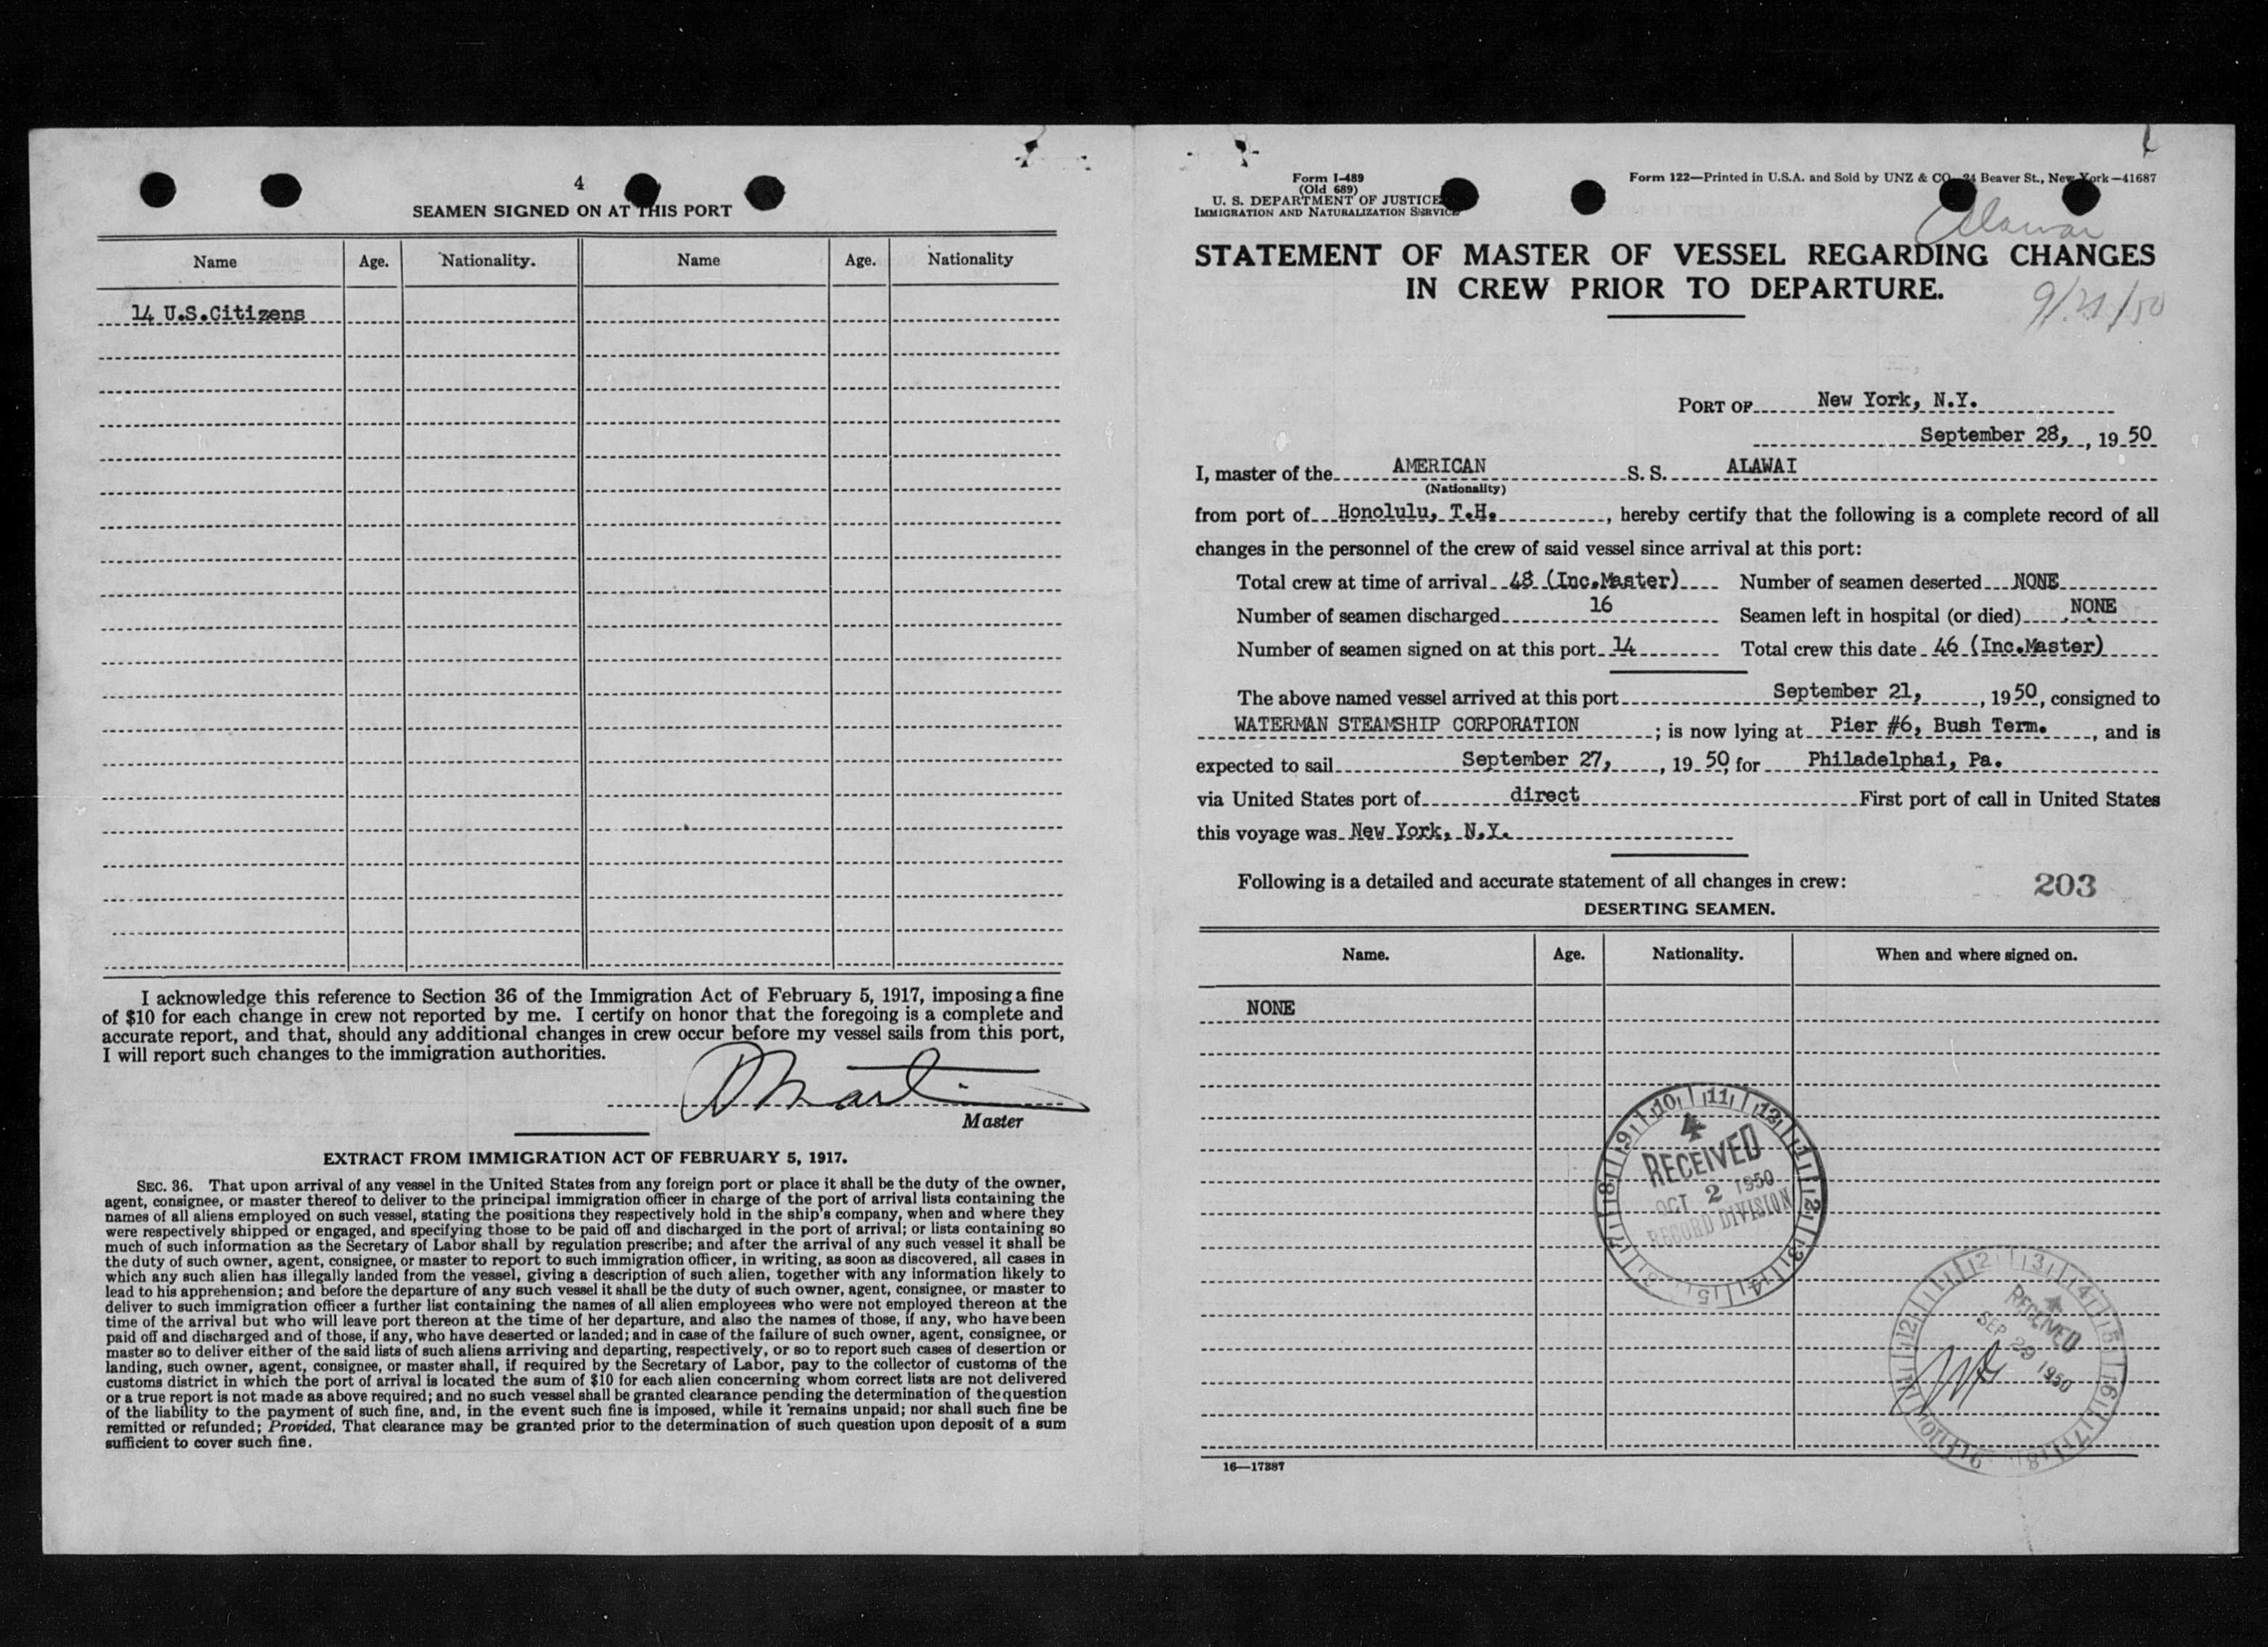 4
SEAMEN SIGNED ON AT THIS PORT
Name Age. Nationality. Name Age. Nationality
14 U.S.Citizens
I acknowledge this reference to Section 36 of the Immigration Act of February 5, 1917, imposing a fine
of $10 for each change in crew not reported by me. I certify on honor that the foregoing is a complete and
accurate report, and that, should any additional changes in crew occur before my vessel sails from this port,
I will report such changes to the immigration authorities.
Martin
Master
EXTRACT FROM IMMIGRATION ACT OF FEBRUARY 5, 1917.
SEC. 36. That upon arrival of any vessel in the United States from any foreign port or place it shall be the duty of the owner,
agent, consignee, or master thereof to deliver to the principal immigration officer in charge of the port of arrival lists containing the
names of all aliens employed on such vessel, stating the positions they respectively hold in the ship's company, when and where they
were respectively shipped or engaged, and specifying those to be paid off and discharged in the port of arrival; or lists containing so
much of such information as the Secretary of Labor shall by regulation prescribe; and after the arrival of any such vessel it shall be
the duty of such owner, agent, consignee, or master to report to such immigration officer, in writing, as soon as discovered, all cases in
which any such alien has illegally landed from the vessel, giving a description of such alien, together with any information likely to
lead to his apprehension; and before the departure of any such vessel it shall be the duty of such owner, agent, consignee, or master to
deliver to such immigration officer a further list containing the names of all alien employees who were not employed thereon at the
time of the arrival but who will leave port thereon at the time of her departure, and also the names of those, if any, who have been
paid off and discharged and of those, if any, who have deserted or landed; and in case of the failure of such owner, agent, consignee, or
master so to deliver either of the said lists of such aliens arriving and departing, respectively, or so to report such cases of desertion or
landing, such owner, agent, consignee, or master shall, if required by the Secretary of Labor, pay to the collector of customs of the
customs district in which the port of arrival is located the sum of $10 for each alien concerning whom correct lists are not delivered
or a true report is not made as above required; and no such vessel shall be granted clearance pending the determination of the question
of the liability to the payment of such fine, and, in the event such fine is imposed, while it remains unpaid; nor shall such fine be
remitted or refunded; Provided, That clearance may be granted prior to the determination of such question upon deposit of a sum
sufficient to cover such fine.
Form I-489
(Old 689)
U. S. DEPARTMENT OF JUSTICE
IMMIGRATION AND NATURALIZATION SERVICE
Form 122—Printed in U.S.A. and Sold by UNZ & CO. 24 Beaver St., New York—41687
Alawai
STATEMENT OF MASTER OF VESSEL REGARDING CHANGES
IN CREW PRIOR TO DEPARTURE.
9/21/50
PORT OF New York, N.Y.
September 28, , 19 50
I, master of the AMERICAN S. S. ALAWAI
(Nationality)
from port of Honolulu, T.H. , hereby certify that the following is a complete record of all
changes in the personnel of the crew of said vessel since arrival at this port:
Total crew at time of arrival 48 (Inc.Master) Number of seamen deserted NONE
Number of seamen discharged 16 Seamen left in hospital (or died) NONE
Number of seamen signed on at this port 14 Total crew this date 46 (Inc.Master)
The above named vessel arrived at this port September 21, , 19 50, consigned to
WATERMAN STEAMSHIP CORPORATION ; is now lying at Pier #6, Bush Term. , and is
expected to sail September 27, , 19 50, for Philadelphai, Pa.
via United States port of direct First port of call in United States
this voyage was New York, N.Y.
Following is a detailed and accurate statement of all changes in crew: 203
DESERTING SEAMEN.
Name. Age. Nationality. When and where signed on.
NONE
RECEIVED
OCT 2 1950
RECORD DIVISION
RECEIVED
SEP 29 1950
16—17387